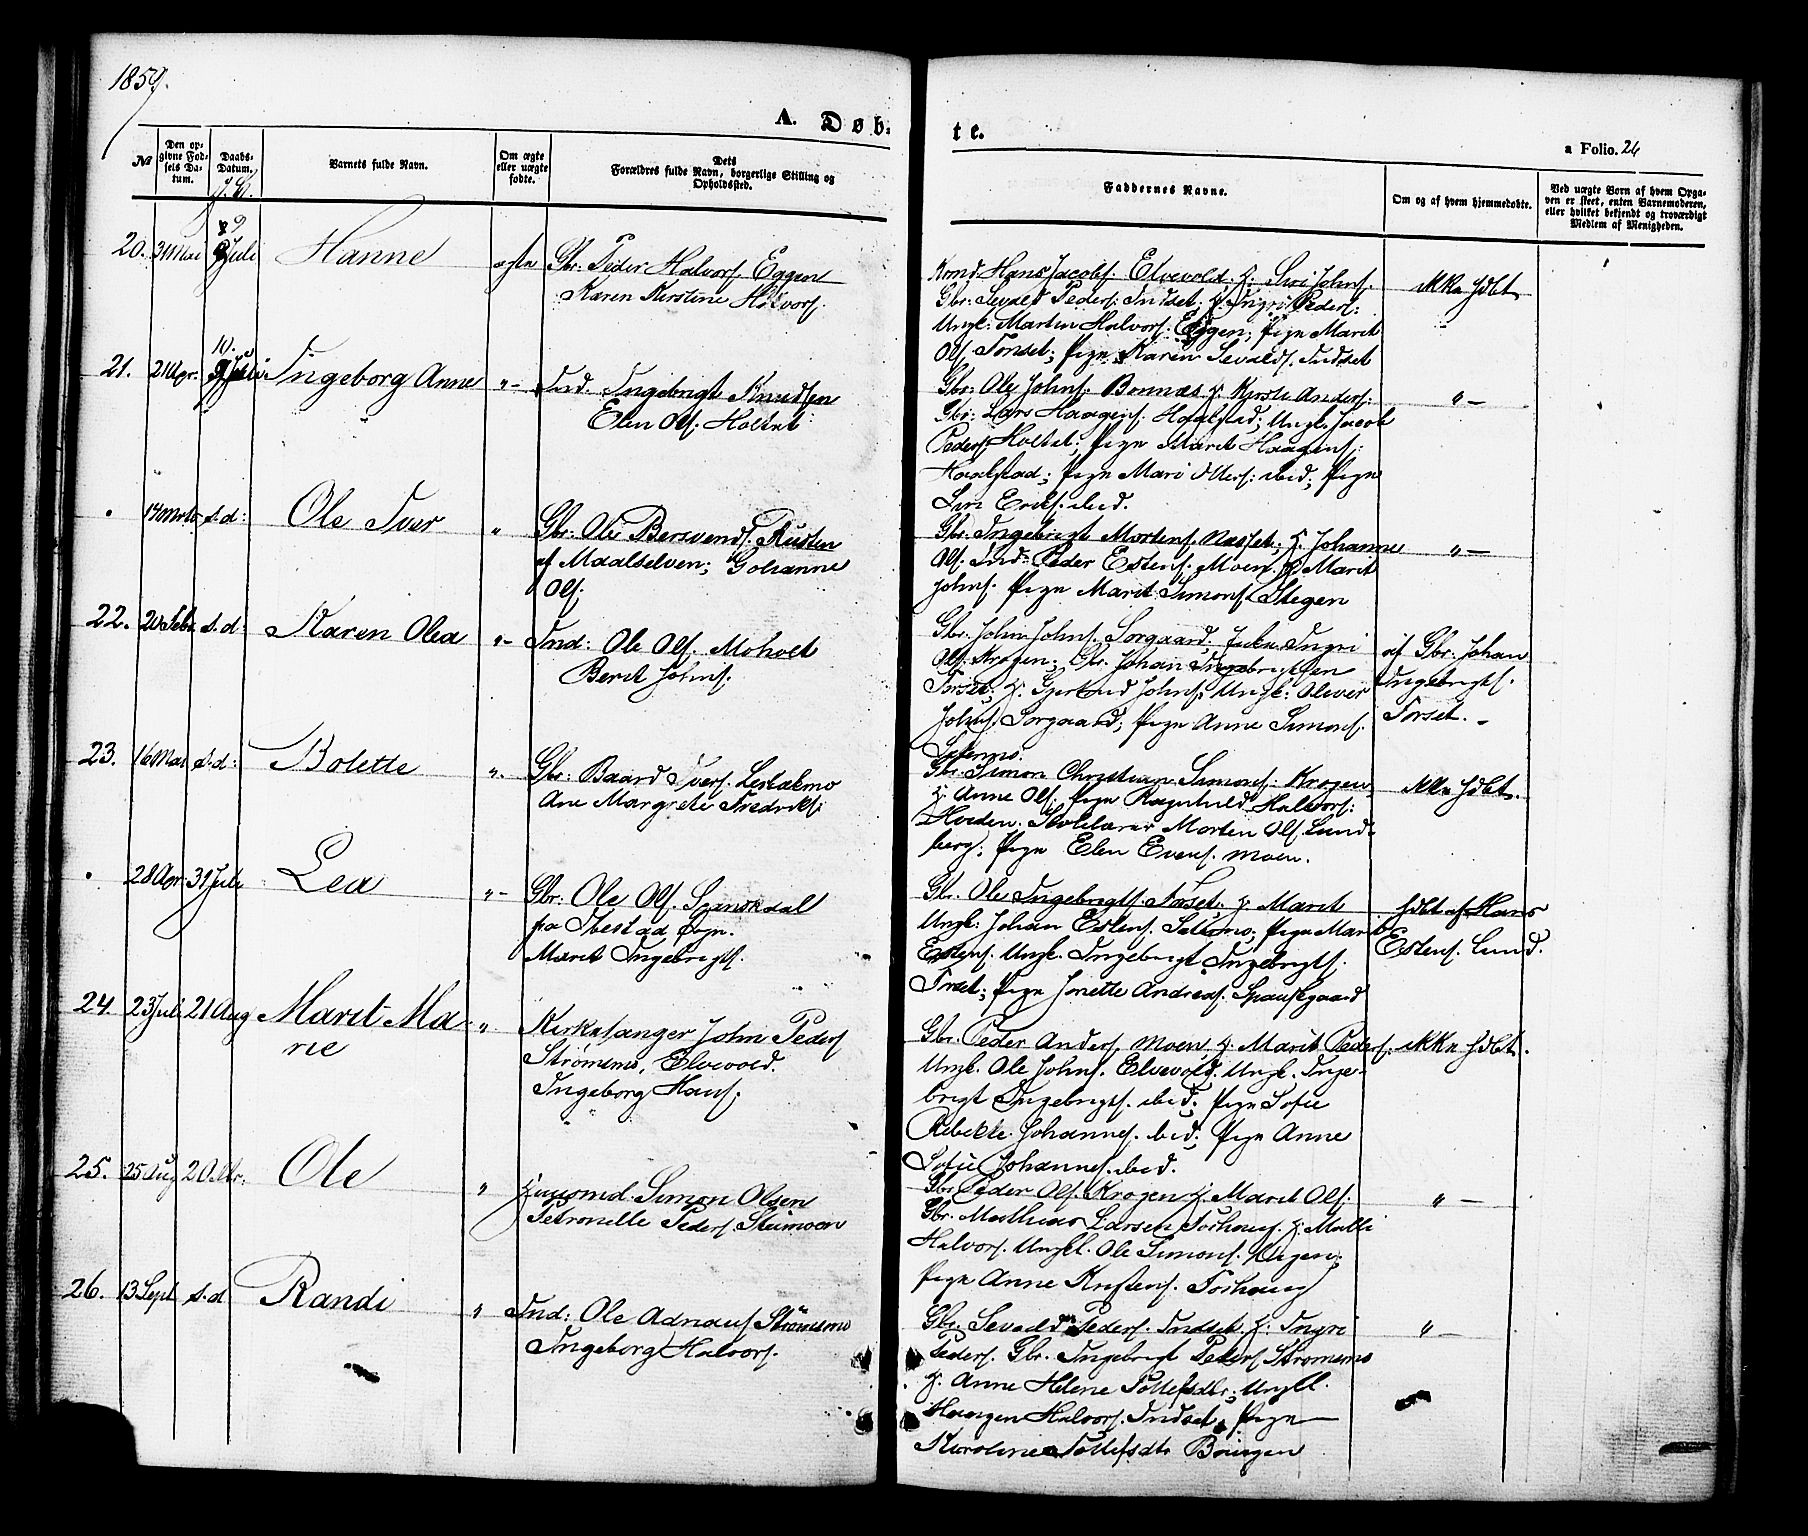 1859.
A. Døb-
te.
a Folio. 26
No
Den opgivne Fodsels Datum.
Daabs-Datum.
Barnets fulde Navn.
Om ægte eller uægte fodte.
Dets Forældres fulde Navn, borgerlige Stilling og Opholdssted.
Faddernes Navne.
Om og af hvem hjemmedøbte.
Ved uægte Born af hvem Opgaven er skeet, enten Barnemoderen, eller hvilket bekjendt og troværdigt Medlem af Menigheden.
20. 31 Mai Juli Hanne ægte Gbr. Peder Halvors. Eggen
Karen Kirstine Halvors.
Hans Jacobs. Elvevold. H. Siri Johns.
Gbr: Sevald Peders: Indset; H. Ingri Peders:
Ungk: Martin Halvors. Eggen; Pige Marit
Ols. Tonset; Pige Karen Sevalds. Indset
ikke hdbt.
21. 21 Apr. Juli Ingeborg Anne "- Ind. Ingebrigt Knudsen
Elen Ols. Holtet
Gbr: Ole Johns: Bonnæs H. Kirsti Anders:
Gbr: Lars Haagens. Haalstad; Ungk. Jacob
Peders Holtet; Pige Marit Haagens;
Haalstad; Pige Mari Otters: ibid; Pige
Siri Eriks. ibid.
"-
14 Marts s.d: Ole Iver " Gbr: Ole Bersvends. Rusten
af Maalselven; Johanne
Ols.
Gbr. Ingebrigt Mortens. Næsset; H. Johanne
Ols. Ind: Peder Estens. Moen. H. Marit
Johns. Pige Marit Simons. Stegen
"-
22. 20 Febr. s.d: Karen Olea "- Ind: Ole Ols. Moholt
Berit Johns.
Gbr. John Johns. Sørgaard. Enke Ingri
Ols. Krogen; Gbr. Johan Ingebrigtsen
Forset; H. Gjertrud Johns; Ungk: Oliver
Johns. Sørgaard; Pige Anne Simons.
Sætermo.
af Gbr. Johan
Ingebrigts.
Forset.-
23. 16 Mai s.d: Bolette ". Gbr: Baard Ivers. Lestalmo
Ane Margrete Fredriks:
Gbr. Simon Christian Simons: Krogen
H. Anne Ols. Pige Ragnhild Halvors:
Skolelærer Morten Ols. Lund-
berg; Pige Elen Evens. Moen.
ikke hdbt.
28 Apr. 31 Juli Lea "- Gbr: Ole Ols. Spanskdal
fra Ibestad Sogn.
Marit Ingebrigts.
Gbr. Ole Ingebrigts. Forset. H. Marit
Ungk: Johan Estens. Sætermo; Pige Marit
Estens. Ungk. Ingebrigt Ingebrigts.
Forset; Pige Jonette Andreas. Spanskgaard
hdbt af Hans
Estens. Lund.
24. 23 Juli 21 Aug Marit Ma
rie
" Kirkesanger John Peders
Strømsmo, Elvevold.
Ingeborg Hans.
Gbr. Peder Anders. Moen H. Marit Peders:
Ungk. Ole Johns. Elvevold. Ungk. Inge-
brigt Ingebrigts. ibid; Pige Sofie
Rebekke Johannes. ibid; Pige Anne
Sofie Johannes. ibid.
ikke hdbt.
25. 25 Aug 2 Oktr. Ole " Huusmd. Simon Olsen
Petronelle Peders. Steimoen
Gbr. Peder Ols. Krogen H. Marit Ols:
Gbr. Mathias Larsen Forhaug. H. Malli
Halvors. Ungkl. Ole Simons.
Pige Anne Krestens. Forhaug
"-
26. 13 Sept s.d Randi " Ind: Ole Adrians Strømsmo
Ingeborg Halvors.
Gbr. Sevald Peders. Indset. H. Ingri
Peders. Gbr. Ingebrigt Peders Strømsmo
H. Anne Helene Tollefsdtr; Ungkl.
Haagen Halvors. Indset; Pige
Karoline Tollefsdtr
"-